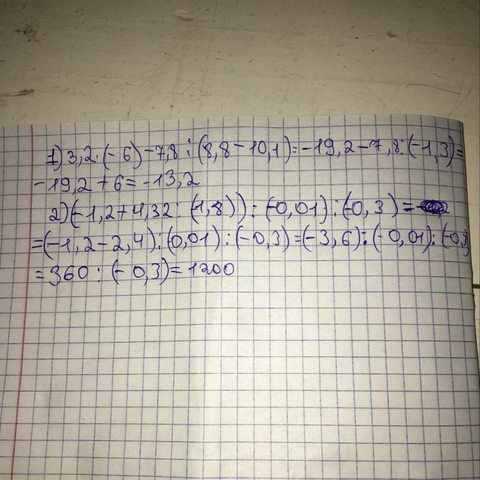 1) 3,2·(-6)-7,8:(8,8-10,1)=-19,2-7,8:(-1,3)=
-19,2+6=-13,2
2)(-1,2+4,32:(-1,8)):(-0,01):(-0,3)=
=(-1,2-2,4):(0,01):(-0,3)=(-3,6):(-0,01):(-0,3)
=360:(-0,3)=1200